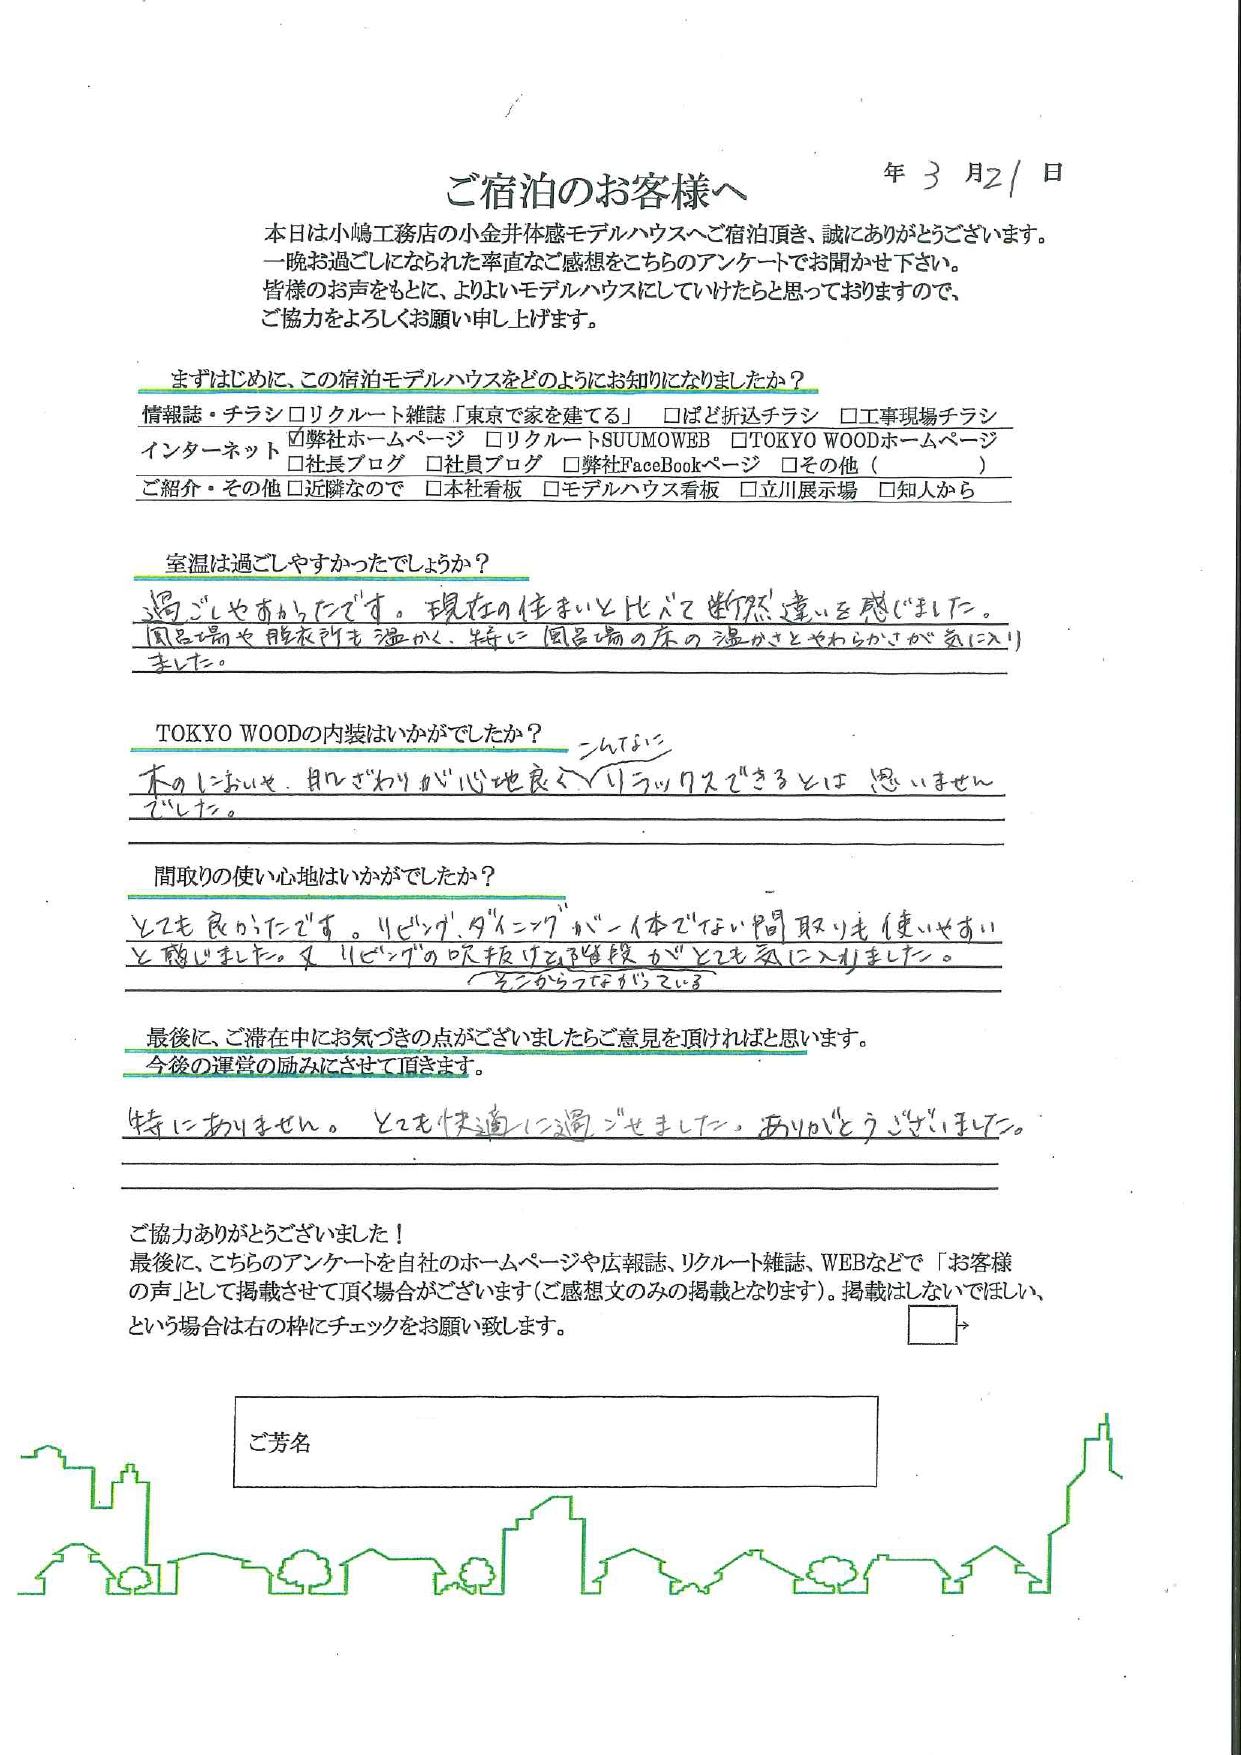 年 3 月 21 日
ご宿泊のお客様へ
本日は小嶋工務店の小金井体感モデルハウスへご宿泊頂き、誠にありがとうございます。
一晩お過ごしになられた率直なご感想をこちらのアンケートでお聞かせ下さい。
皆様のお声をもとに、よりよいモデルハウスにしていけたらと思っておりますので、
ご協力をよろしくお願い申し上げます。
まずはじめに、この宿泊モデルハウスをどのようにお知りになりましたか？
情報誌・チラシ □リクルート雑誌「東京で家を建てる」 □ぱど折込チラシ □工事現場チラシ
インターネット ☑弊社ホームページ □リクルートSUUMOWEB □TOKYO WOODホームページ
□社長ブログ □社員ブログ □弊社FaceBookページ □その他（ ）
ご紹介・その他 □近隣なので □本社看板 □モデルハウス看板 □立川展示場 □知人から
室温は過ごしやすかったでしょうか？
過ごしやすかったです。現在の住まいと比べて断然違いを感じました。
風呂場や脱衣所も温かく、特に風呂場の床の温かさとやわらかさが気に入り
ました。
TOKYO WOODの内装はいかがでしたか？
こんなに
木のにおいや、肌ざわりが心地良く リラックスできるとは思いません
でした。
間取りの使い心地はいかがでしたか？
とても良かったです。リビング、ダイニングが一体でない間取りも使いやすい
と感じました。又リビングの吹抜けと階段がとても気に入りました。
そこからつながっている
最後に、ご滞在中にお気づきの点がございましたらご意見を頂ければと思います。
今後の運営の励みにさせて頂きます。
特にありません。とても快適に過ごせました。ありがとうございました。
ご協力ありがとうございました！
最後に、こちらのアンケートを自社のホームページや広報誌、リクルート雑誌、WEBなどで「お客様
の声」として掲載させて頂く場合がございます（ご感想文のみの掲載となります）。掲載はしないでほしい、
という場合は右の枠にチェックをお願い致します。
ご芳名